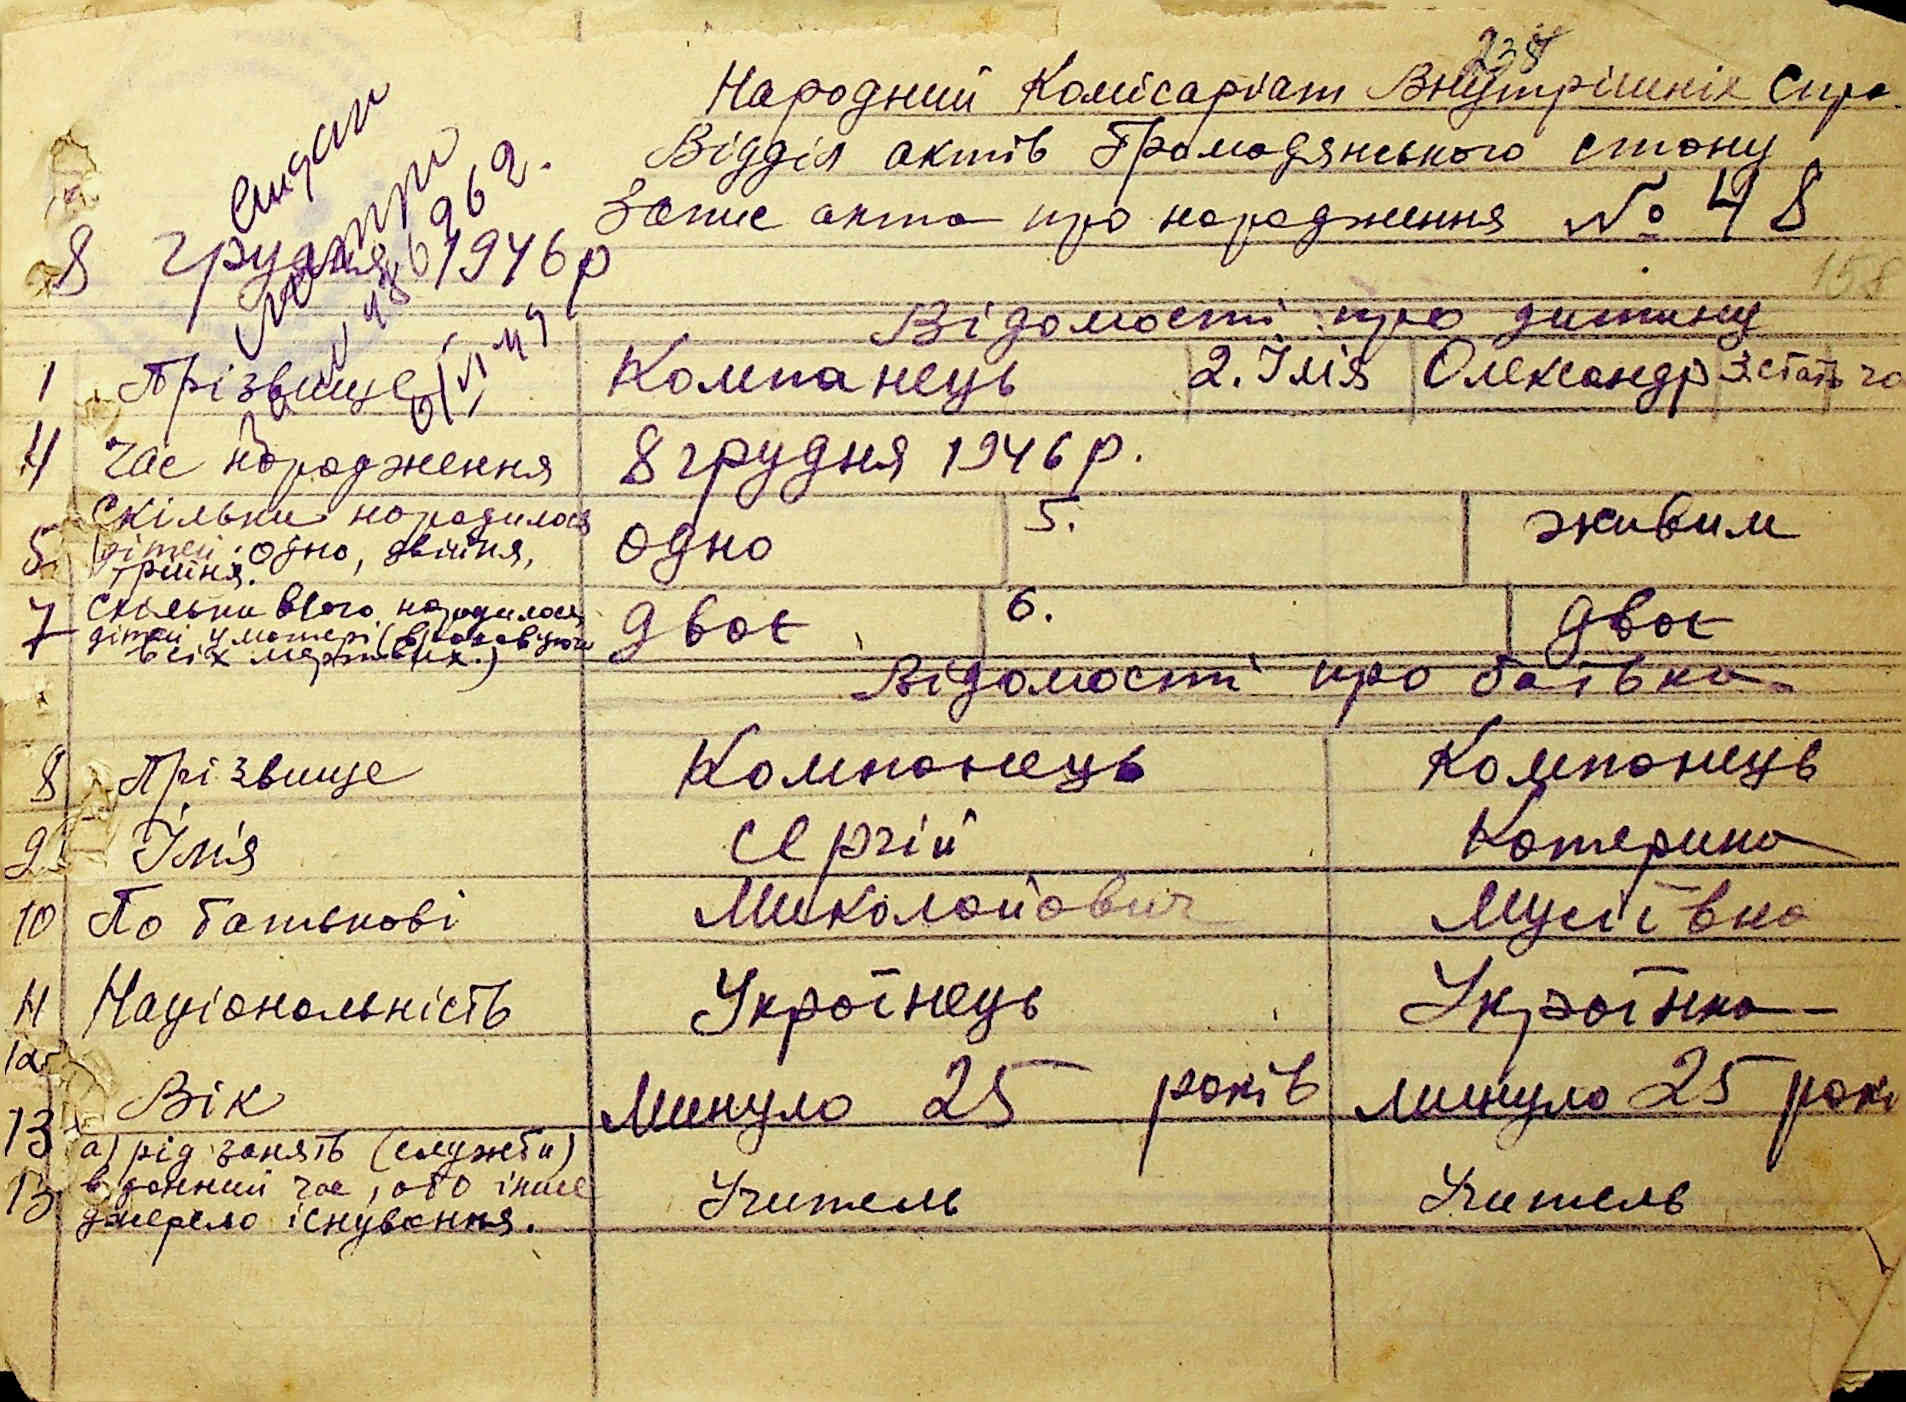 238
Народний Комісаріат Внутрішніх Спра
Відділ актів Громадянського стану
Запис акта про народження № 48
8 грудня 1946 р
158
Відомості про дитину
1 Прізвище Компанець 2. Імія Олександр 3. стать чо
4 Час народження 8 грудня 1946 р.
5 Скільки народилось дітей: одно, двійня, трійня. одно 5. живим
7 Скільки всього народилося дітей у матері (враховуючи всіх мертвих.) двоє 6. двоє
Відомості про батька
8 Прізвище Компанець Компанець
9 Їм'я Сергій Катерина
10 По батькові Миколайович Мусіївна
11 Національність Українець Українка
12 Вік Минуло 25 років минуло 25 рокі
13
13 а) рід занять (служби)
в данний час, або інше
джерело існування. Учитель Учитель